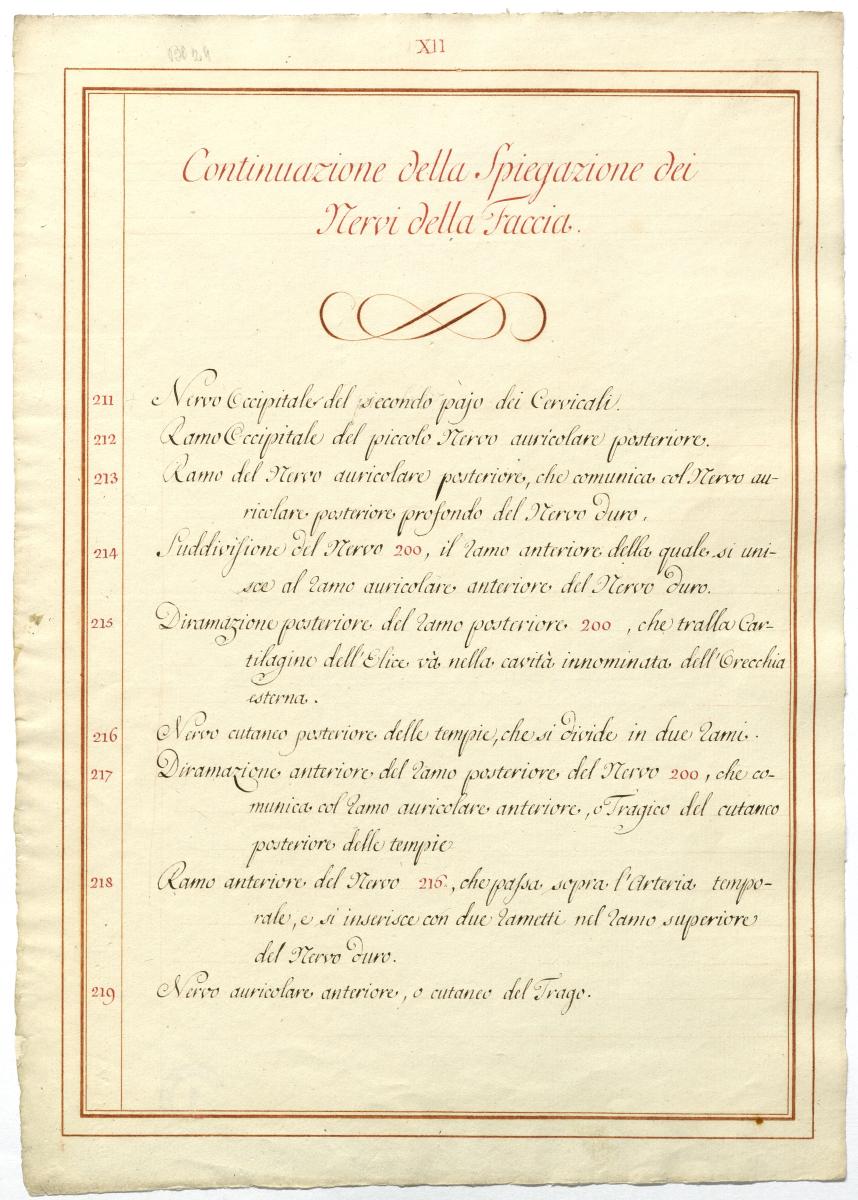 XII
Continuazione della Spiegazione dei
Nervi della Faccia.
211 Nervo Occipitale del secondo pajo dei Cervicali.
212 Ramo Occipitale del piccolo Nervo auricolare posteriore.
213 Ramo del Nervo auricolare posteriore, che comunica col Nervo au-
ricolare posteriore profondo del Nervo duro.
214 Suddivisione del Nervo 200, il ramo anteriore della quale si uni-
sce al ramo auricolare anteriore del Nervo duro.
215 Diramazione posteriore del ramo posteriore 200, che tralla Car-
tilagine dell'Elice và nella cavità innominata dell'Orecchia
esterna.
216 Nervo cutaneo posteriore delle tempie, che si divide in due rami.
217 Diramazione anteriore del ramo posteriore del Nervo 200, che co-
munica col ramo auricolare anteriore, o Tragico del cutaneo
posteriore delle tempie
218 Ramo anteriore del Nervo 216, che passa sopra l'Arteria tempo-
rale, e si inserisce con due rametti nel ramo superiore
del Nervo duro.
219 Nervo auricolare anteriore, o cutaneo del Trago.